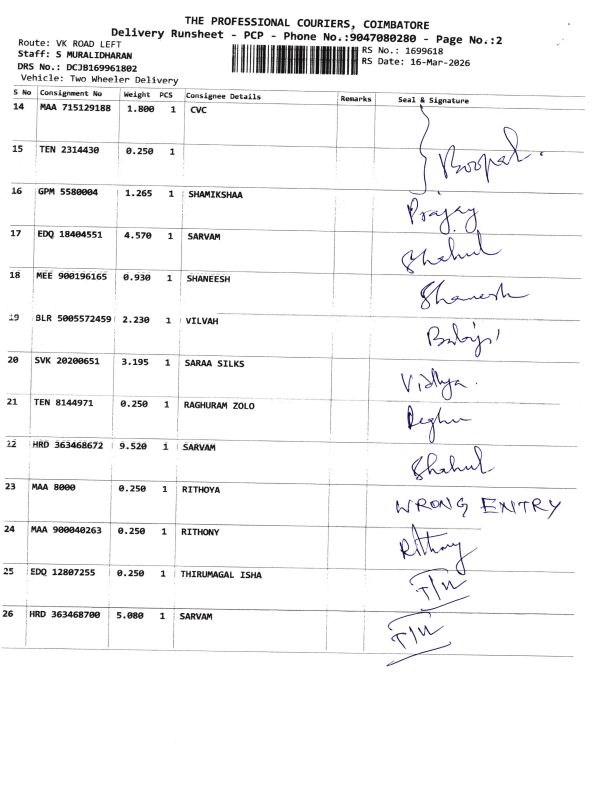 THE PROFESSIONAL COURIERS, COIMBATORE
Delivery Runsheet - PCP - Phone No.:9047080280 - Page No.:2
Route: VK ROAD LEFT
Staff: S MURALIDHARAN
DRS No.: DCJB169961802
Vehicle: Two Wheeler Delivery
RS No.: 1699618
RS Date: 16-Mar-2026
S No Consignment No Weight PCS Consignee Details Remarks Seal & Signature
14 MAA 715129188 1.800 1 CVC
15 TEN 2314430 0.250 1
16 GPM 5580004 1.265 1 SHAMIKSHAA Prajay
17 EDQ 18404551 4.570 1 SARVAM Shahul
18 MEE 900196165 0.930 1 SHANEESH Shaneesh
19 BLR 5005572459 2.230 1 VILVAH
20 SVK 20200651 3.195 1 SARAA SILKS Vidhya.
21 TEN 8144971 0.250 1 RAGHURAM ZOLO Reghu
22 HRD 363468672 9.520 1 SARVAM Shahul
23 MAA 8000 0.250 1 RITHOYA WRONG ENTRY
24 MAA 900040263 0.250 1 RITHONY Rithony
25 EDQ 12807255 0.250 1 THIRUMAGAL ISHA
26 HRD 363468700 5.080 1 SARVAM